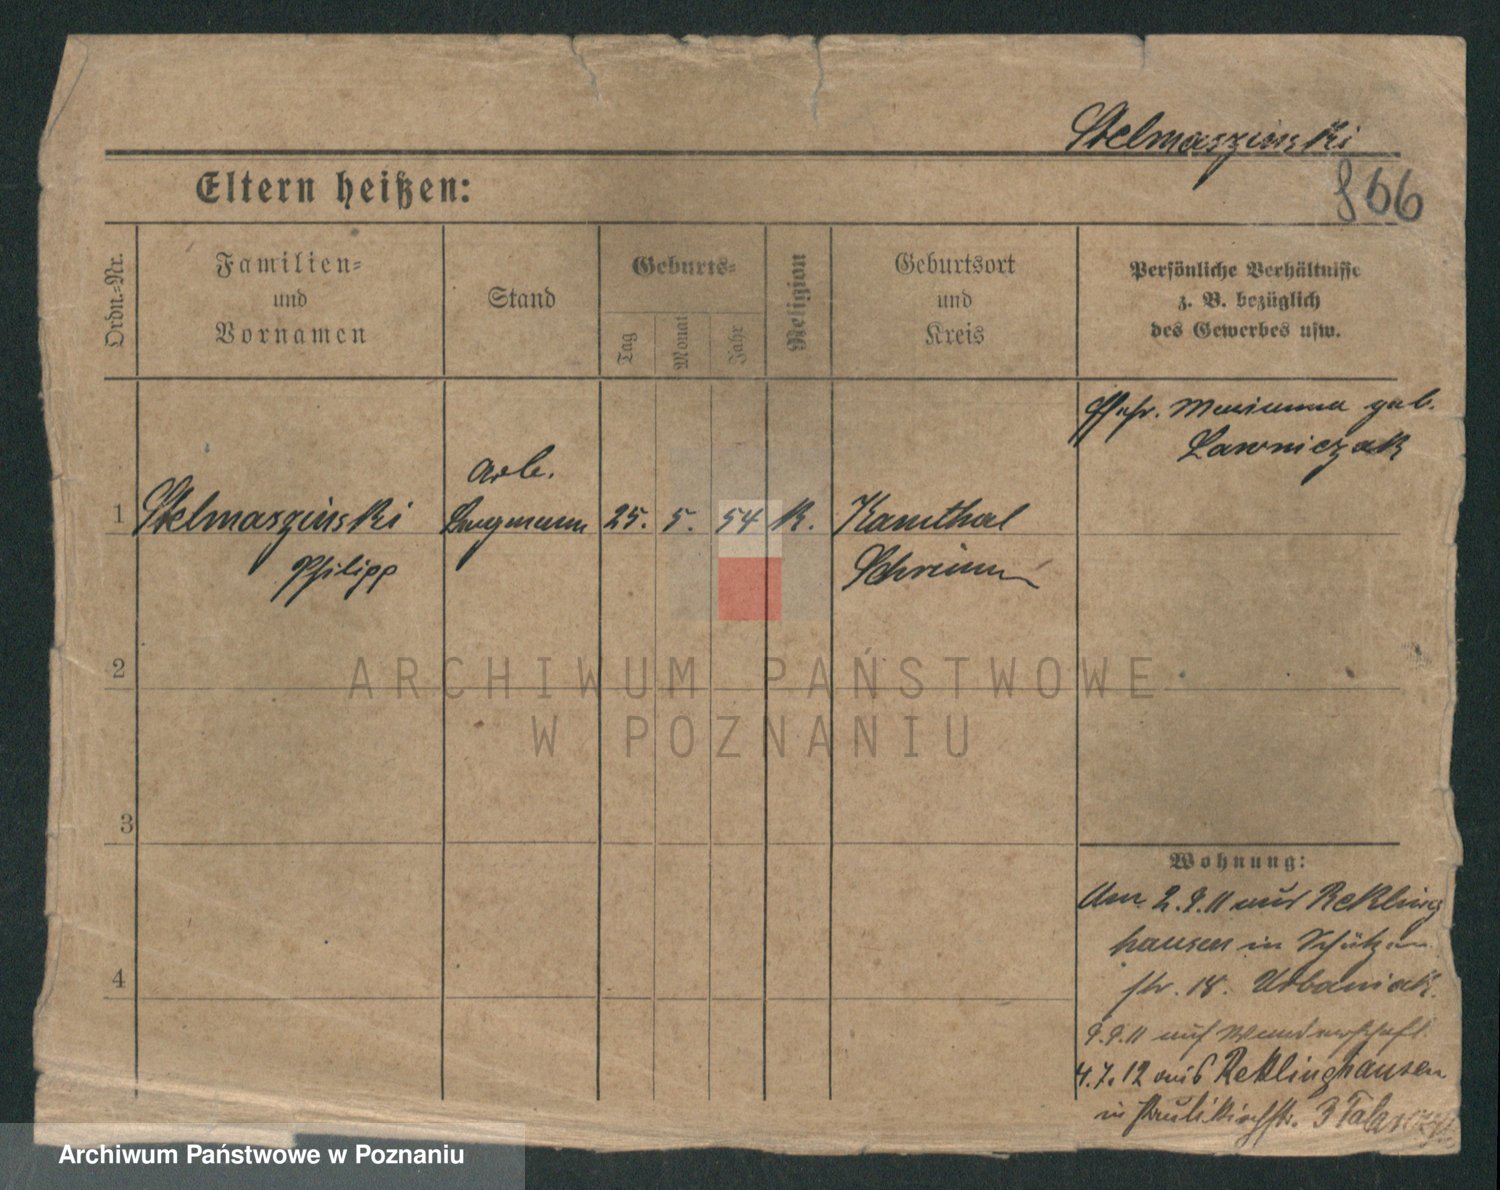 Stelmaszinski
Eltern heißen:
866
Ordn.-Nr.
Familien-
und
Vornamen
Stand
Geburts-
Tag
Monat
Jahr
Religion
Geburtsort
und
Kreis
Persönliche Verhältnisse
z. B. bezüglich
des Gewerbes usw.
Ehefr. Marianna geb.
Lawniczak
1
Stelmaszinski
Philipp
Arb.
25. 5. 54
K.
Kamthal
Schrimm
2
3
4
Wohnung:
Am 2.9.11 aus Rekling
hausen in Schützen
str. 18. Urbaniak.
9.9.11 auf Wanderschaft.
4.7.12 aus Reklinghausen
in Paulikirchstr. 3
ARCHIWUM PAŃSTWOWE
W POZNANIU
Archiwum Państwowe w Poznaniu